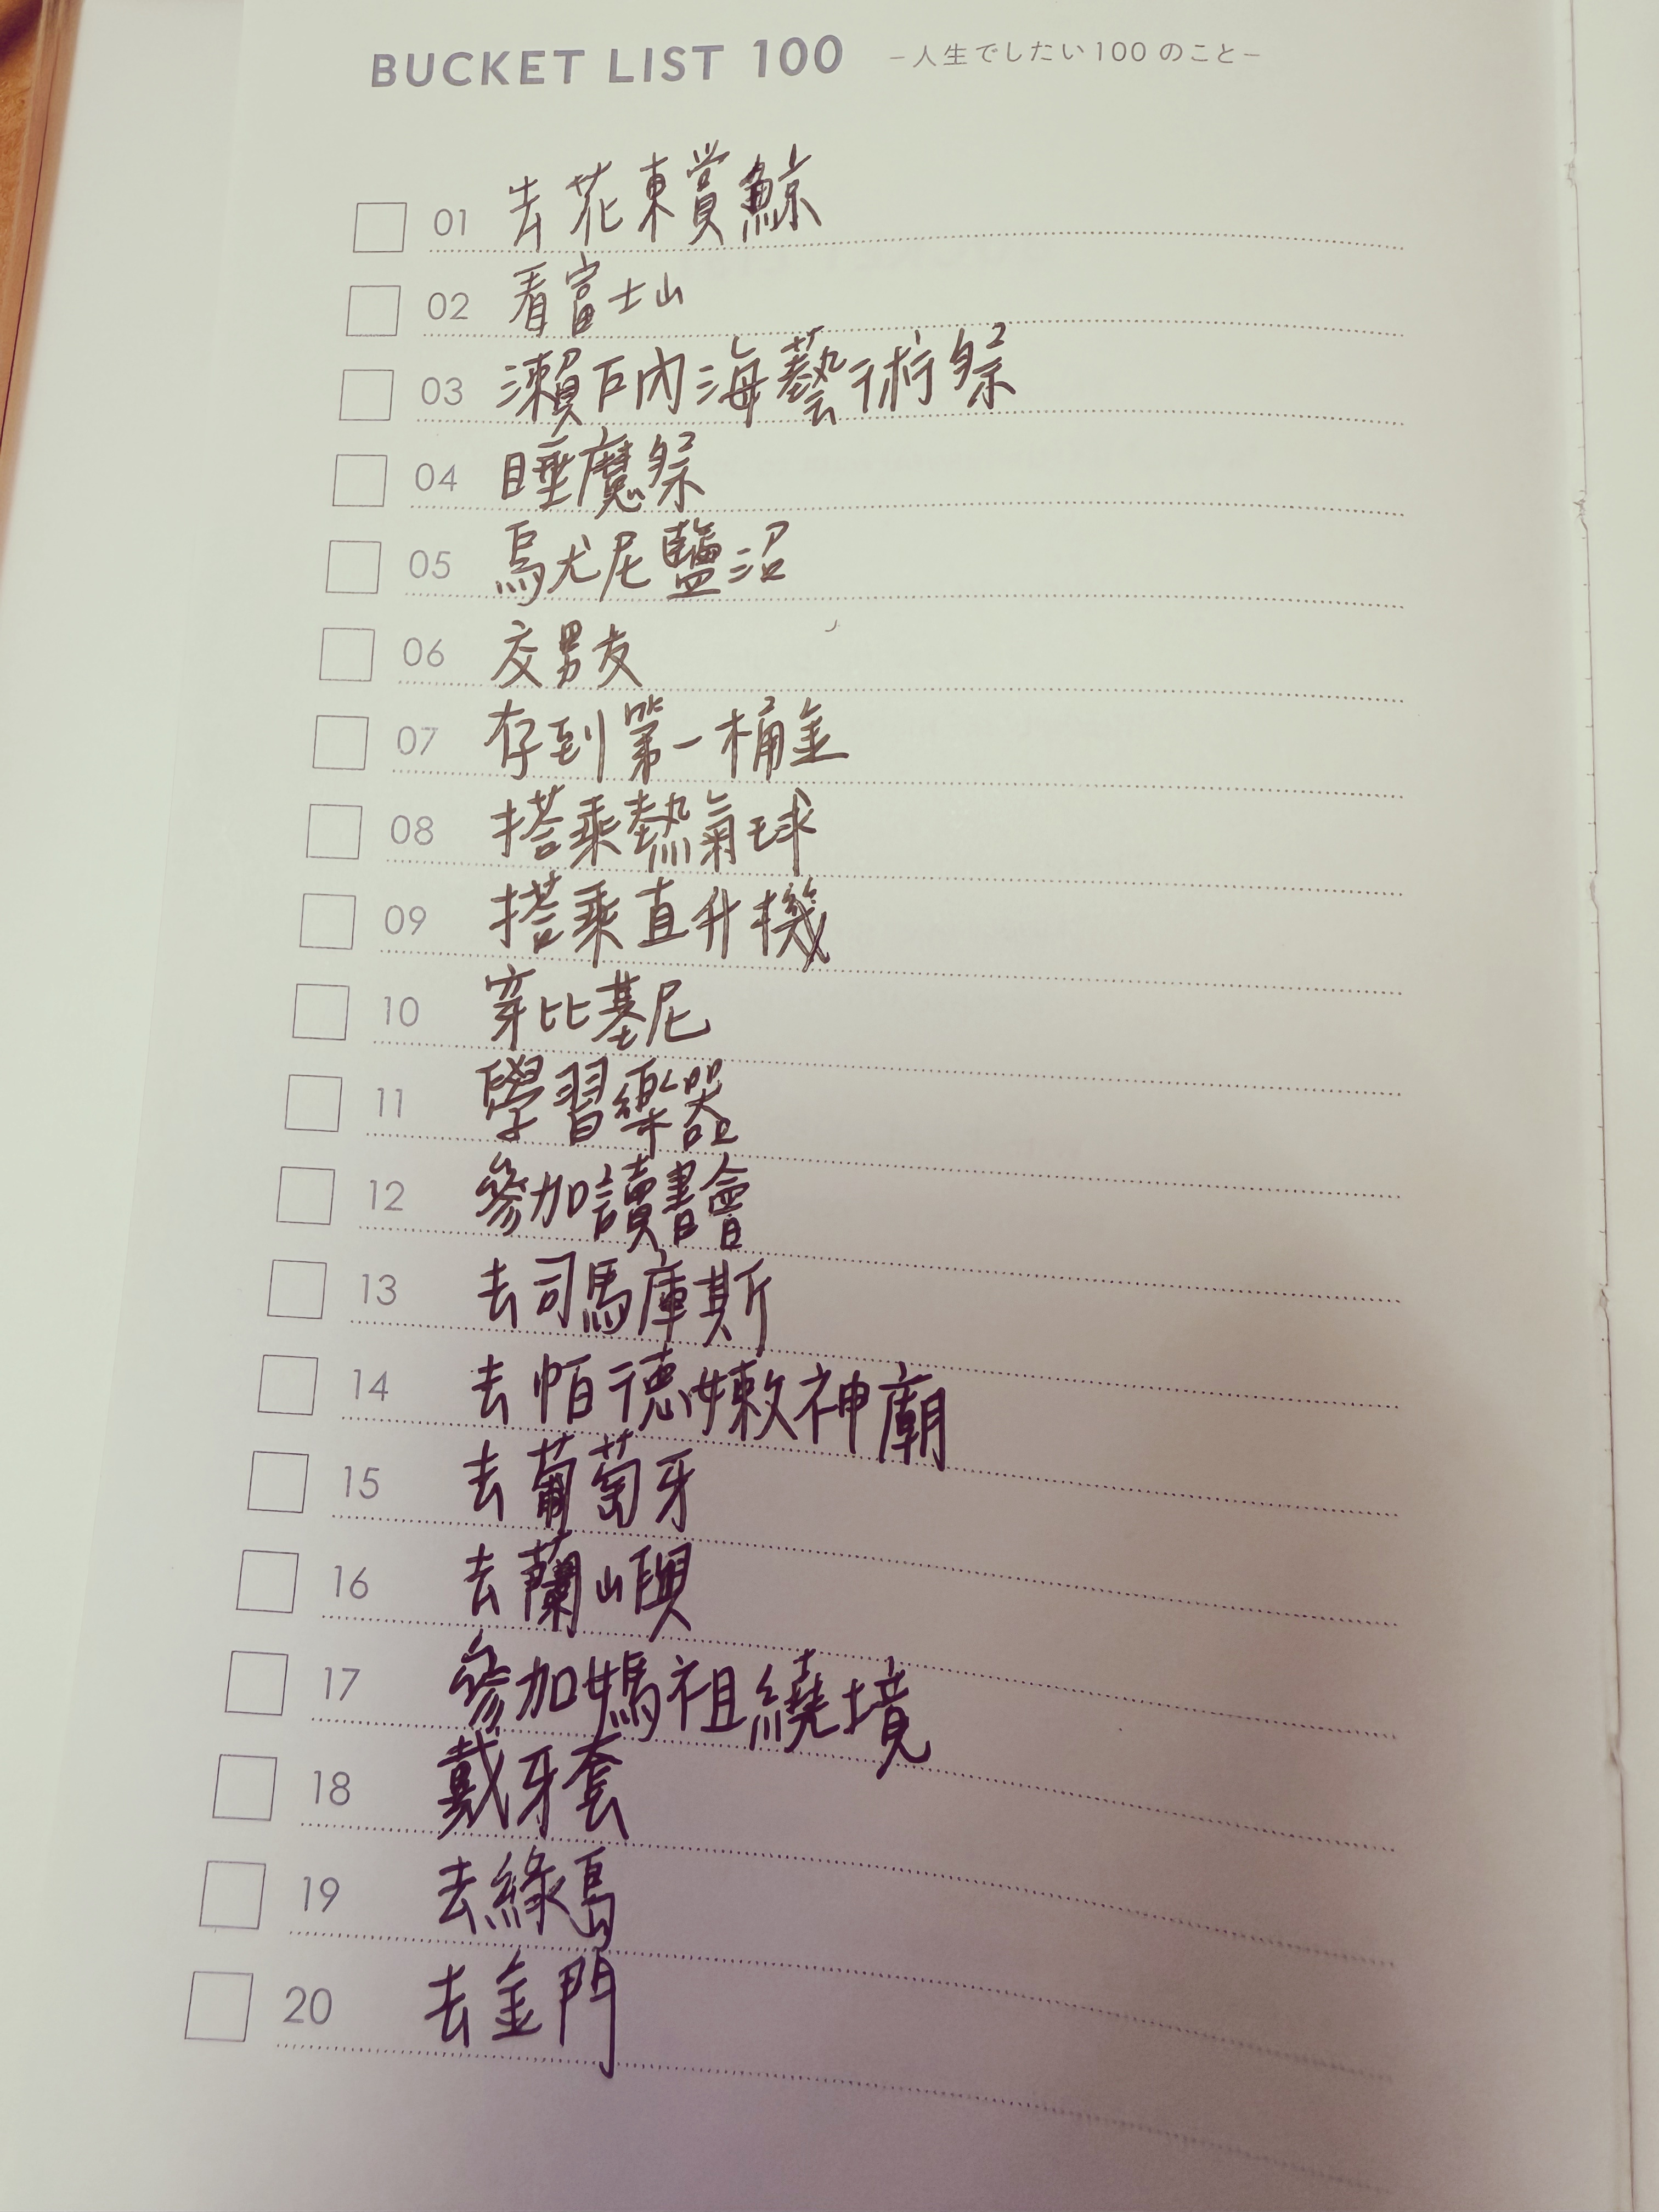 BUCKET LIST 100 −人生でしたい100のこと−
01 去花東賞鯨
02 看富士山
03 瀨戶內海藝術祭
04 睡魔祭
05 烏尤尼鹽沼
06 交男友
07 存到第一桶金
08 搭乘熱氣球
09 搭乘直升機
10 穿比基尼
11 學習樂器
12 參加讀書會
13 去司馬庫斯
14 去帕德嫩神廟
15 去葡萄牙
16 去蘭嶼
17 參加媽祖繞境
18 戴牙套
19 去綠島
20 去金門